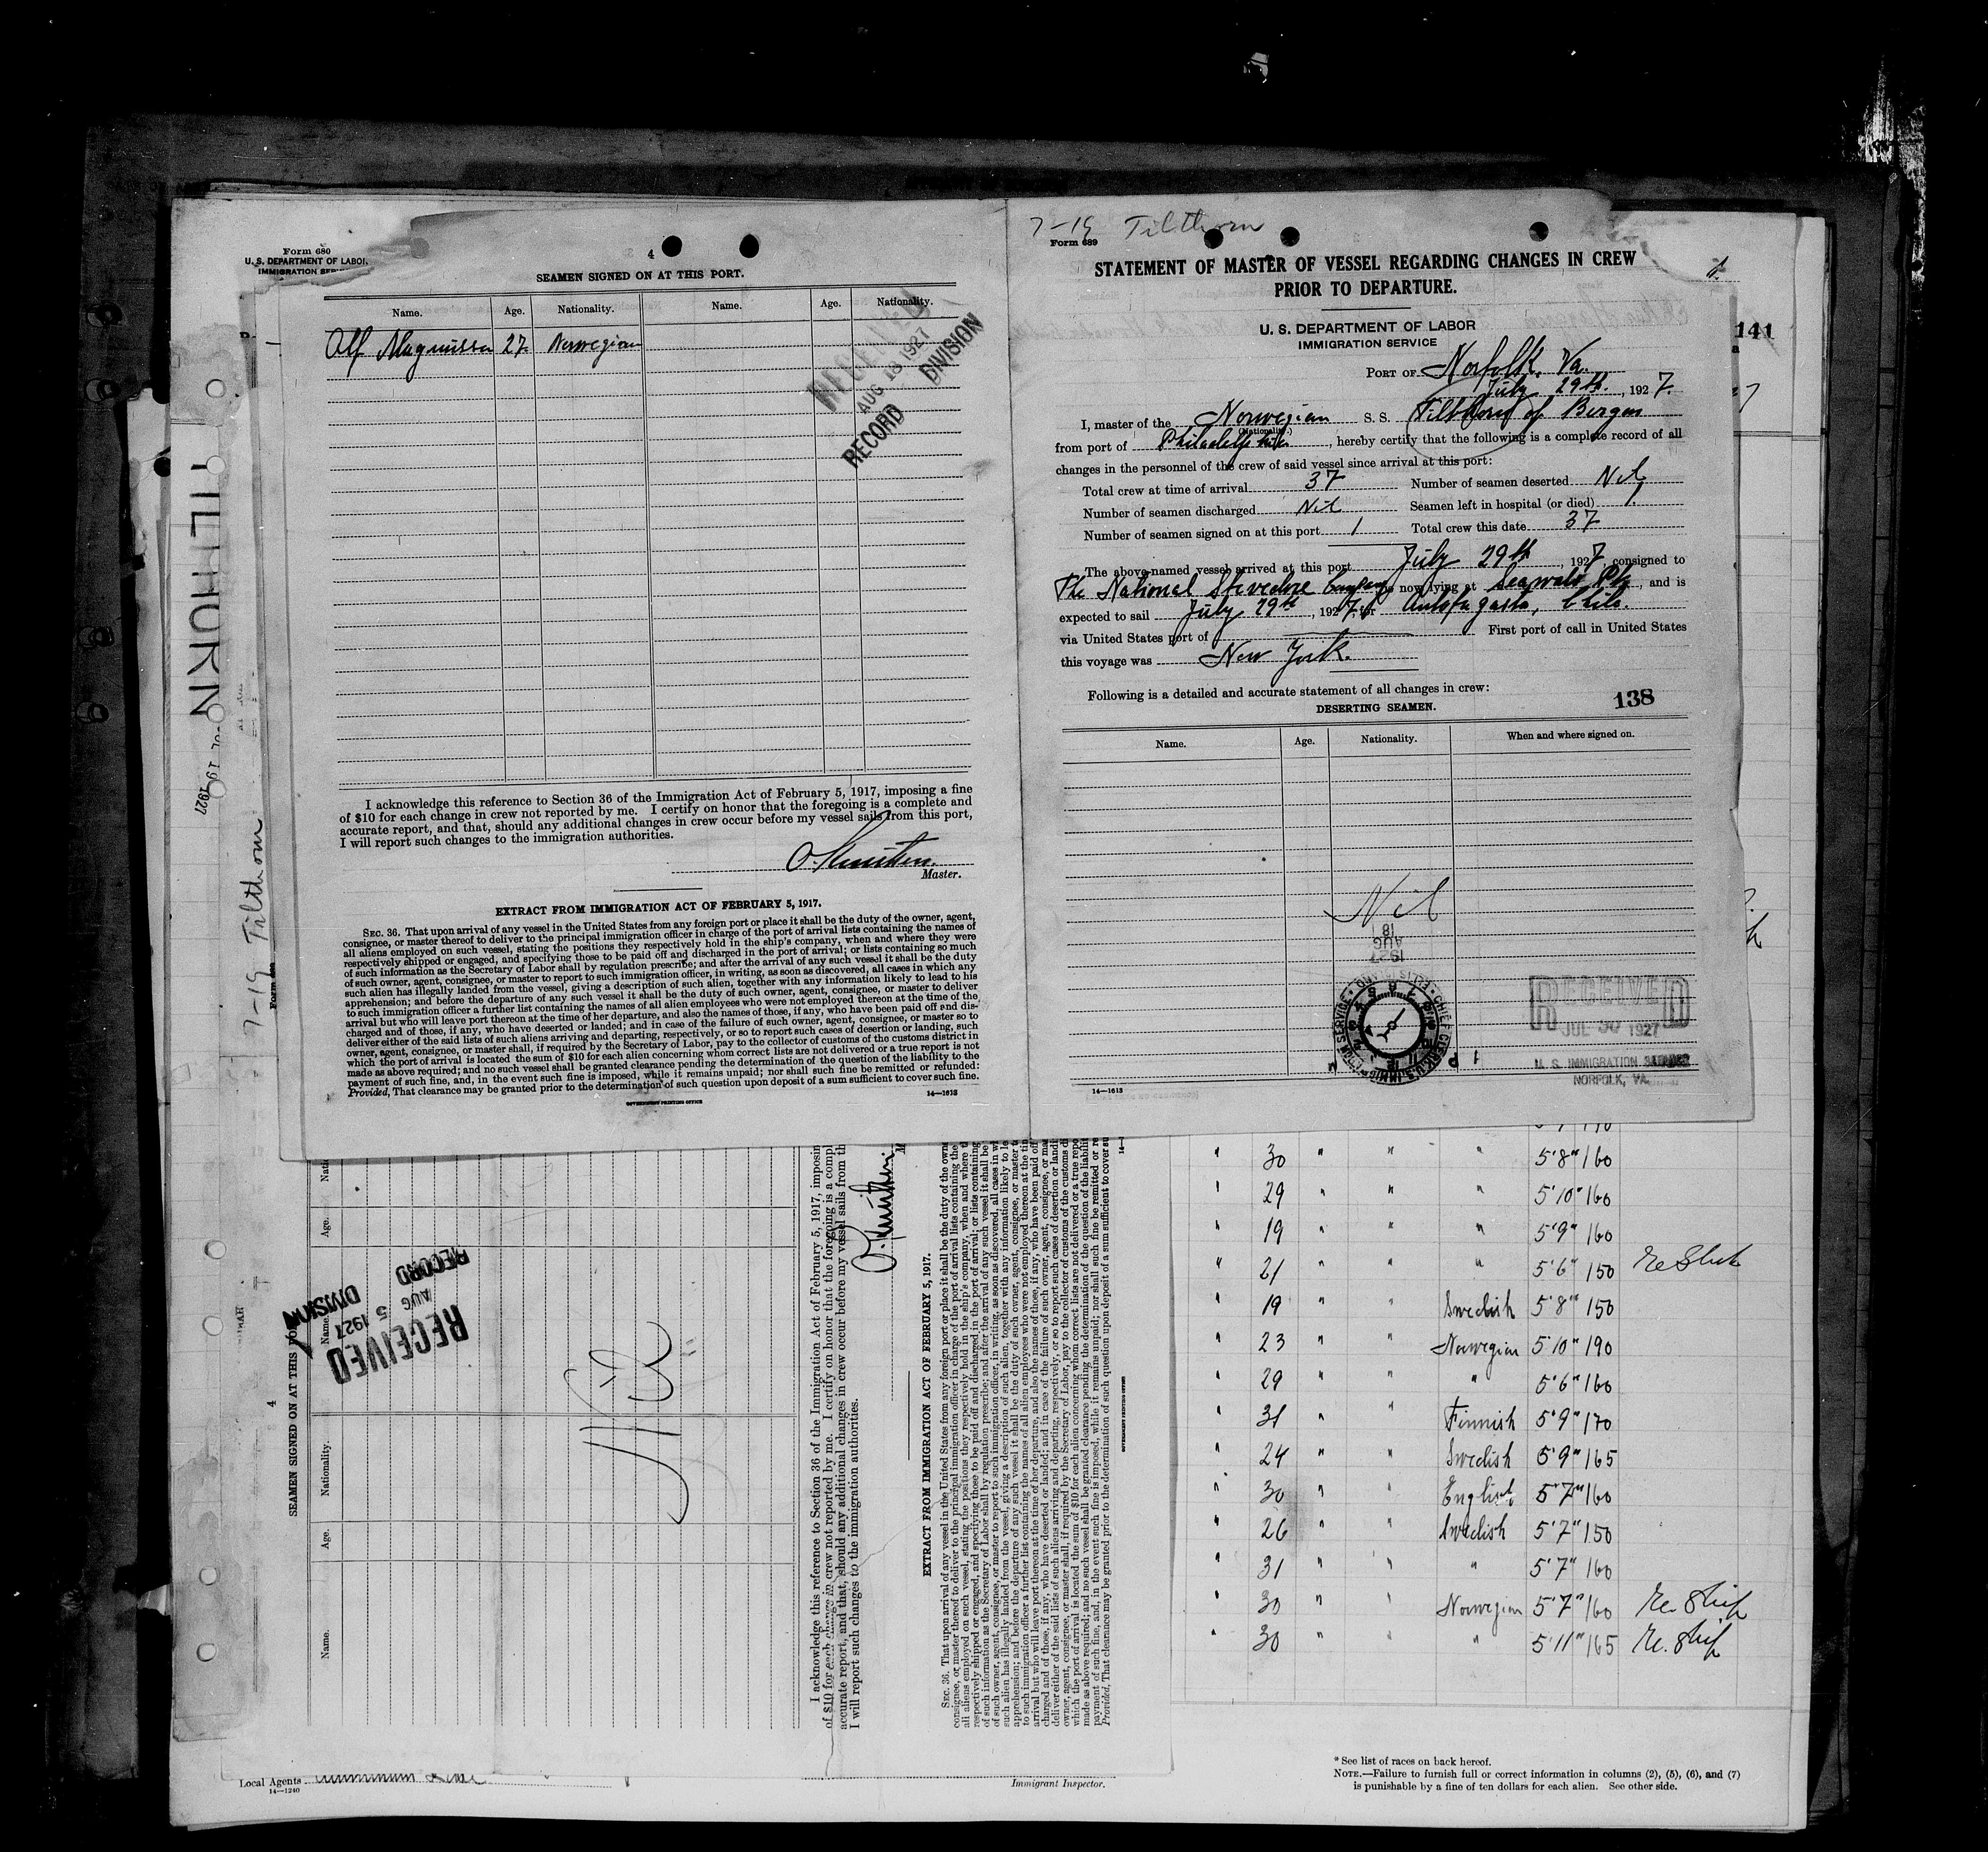 Form 680
U. S. DEPARTMENT OF LABOR
IMMIGRATION SERV
4
SEAMEN SIGNED ON AT THIS PORT.
Name. Age. Nationality. Name. Age. Nationality.
Olf Magnussen 27 Norwegian
RECEIVED
AUG 18 1927
RECORD DIVISION
I acknowledge this reference to Section 36 of the Immigration Act of February 5, 1917, imposing a fine
of $10 for each change in crew not reported by me. I certify on honor that the foregoing is a complete and
accurate report, and that, should any additional changes in crew occur before my vessel sails from this port,
I will report such changes to the immigration authorities.
Master.
EXTRACT FROM IMMIGRATION ACT OF FEBRUARY 5, 1917.
SEC. 36. That upon arrival of any vessel in the United States from any foreign port or place it shall be the duty of the owner, agent,
consignee, or master thereof to deliver to the principal immigration officer in charge of the port of arrival lists containing the names of
all aliens employed on such vessel, stating the positions they respectively hold in the ship's company, when and where they were
respectively shipped or engaged, and specifying those to be paid off and discharged in the port of arrival; or lists containing so much
of such information as the Secretary of Labor shall by regulation prescribe; and after the arrival of any such vessel it shall be the duty
of such owner, agent, consignee, or master to report to such immigration officer, in writing, as soon as discovered, all cases in which any
such alien has illegally landed from the vessel, giving a description of such alien, together with any information likely to lead to his
apprehension; and before the departure of any such vessel it shall be the duty of such owner, agent, consignee, or master to deliver
to such immigration officer a further list containing the names of all alien employees who were not employed thereon at the time of the
arrival but who will leave port thereon at the time of her departure, and also the names of those, if any, who have been paid off and dis-
charged and of those, if any, who have deserted or landed; and in case of the failure of such owner, agent, consignee, or master so to
deliver either of the said lists of such aliens arriving and departing, respectively, or so to report such cases of desertion or landing, such
owner, agent, consignee, or master shall, if required by the Secretary of Labor, pay to the collector of customs of the customs district in
which the port of arrival is located the sum of $10 for each alien concerning whom correct lists are not delivered or a true report is not
made as above required; and no such vessel shall be granted clearance pending the determination of the question of the liability to the
payment of such fine, and, in the event such fine is imposed, while it remains unpaid; nor shall such fine be remitted or refunded:
Provided, That clearance may be granted prior to the determination of such question upon deposit of a sum sufficient to cover such fine.
GOVERNMENT PRINTING OFFICE
14—1613
7-19 Tilthorn
Form 689
STATEMENT OF MASTER OF VESSEL REGARDING CHANGES IN CREW
PRIOR TO DEPARTURE.
U. S. DEPARTMENT OF LABOR
IMMIGRATION SERVICE
PORT OF Norfolk, Va.
July 29th, 1927.
I, master of the Norwegian S. S. Tilthorn of Bergen
(Nationality.)
from port of Philadelphia, hereby certify that the following is a complete record of all
changes in the personnel of the crew of said vessel since arrival at this port:
Total crew at time of arrival 37 Number of seamen deserted Nil
Number of seamen discharged Nil Seamen left in hospital (or died) 1.
Number of seamen signed on at this port 1 Total crew this date 37
The above-named vessel arrived at this port July 29th, 1927, consigned to
The National Stevedore Company now lying at Sewalls Pt, and is
expected to sail July 29th, 1927, for Antofagasta, Chile.
via United States port of First port of call in United States
this voyage was New York.
Following is a detailed and accurate statement of all changes in crew:
DESERTING SEAMEN. 138
Name. Age. Nationality. When and where signed on.
Nil
18
AUG
1927
RECEIVED
JUL 30 1927
U. S. IMMIGRATION SERVICE
NORFOLK, VA.
14—1613
141
TILTHORN
1927
7-19 Tilthorn
4
SEAMEN SIGNED ON AT THIS
Name. Age. Nationality. Name. Age.
RECEIVED
AUG 5 1927
RECORD DIVISION
Nil
I acknowledge this reference to Section 36 of the Immigration Act of February 5, 1917, imposin
of $10 for each change in crew not reported by me. I certify on honor that the foregoing is a compl
accurate report, and that, should any additional changes in crew occur before my vessel sails from th
I will report such changes to the immigration authorities.
EXTRACT FROM IMMIGRATION ACT OF FEBRUARY 5, 1917.
" 30 " " " 5'8" 160
" 29 " " " 5'10" 160
" 19 " " " 5'9" 160
" 21 " " " 5'6" 150
" 19 " " Swedish 5'8" 150
" 23 " " Norwegian 5'10" 190
" 29 " " " 5'6" 160
" 31 " " Finnish 5'9" 170
" 24 " " Swedish 5'9" 165
" 30 " " English 5'7" 160
" 26 " " Swedish 5'7" 150
" 31 " " " 5'7" 160
" 30 " " Norwegian 5'7" 160 Re. Ship
" 30 " " " 5'11" 165 Re. Ship
Local Agents
14—1240
Immigrant Inspector.
* See list of races on back hereof.
NOTE.—Failure to furnish full or correct information in columns (2), (5), (6), and (7)
is punishable by a fine of ten dollars for each alien. See other side.